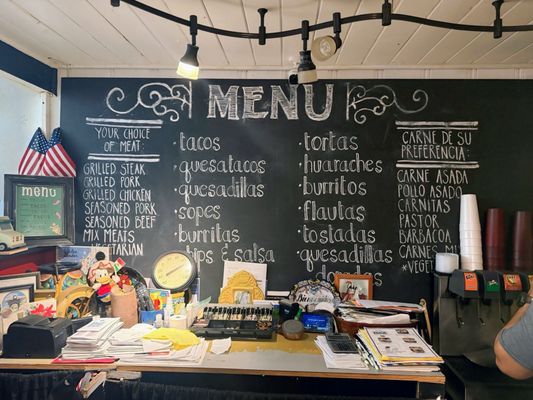 MENU
YOUR CHOICE
OF MEAT:
GRILLED STEAK
GRILLED PORK
GRILLED CHICKEN
SEASONED PORK
SEASONED BEEF
MIX MEATS
VEGETARIAN
· tacos
· quesatacos
· quesadillas
· sopes
· burritas
chips & salsa
· tortas
· huaraches
· burritos
· flautas
· tostadas
· quesadillas
CARNE DE SU
PREFERENCIA:
CARNE ASADA
POLLO ASADA
CARNITAS
PASTOR
BARBACOA
CARNE MIX
menu